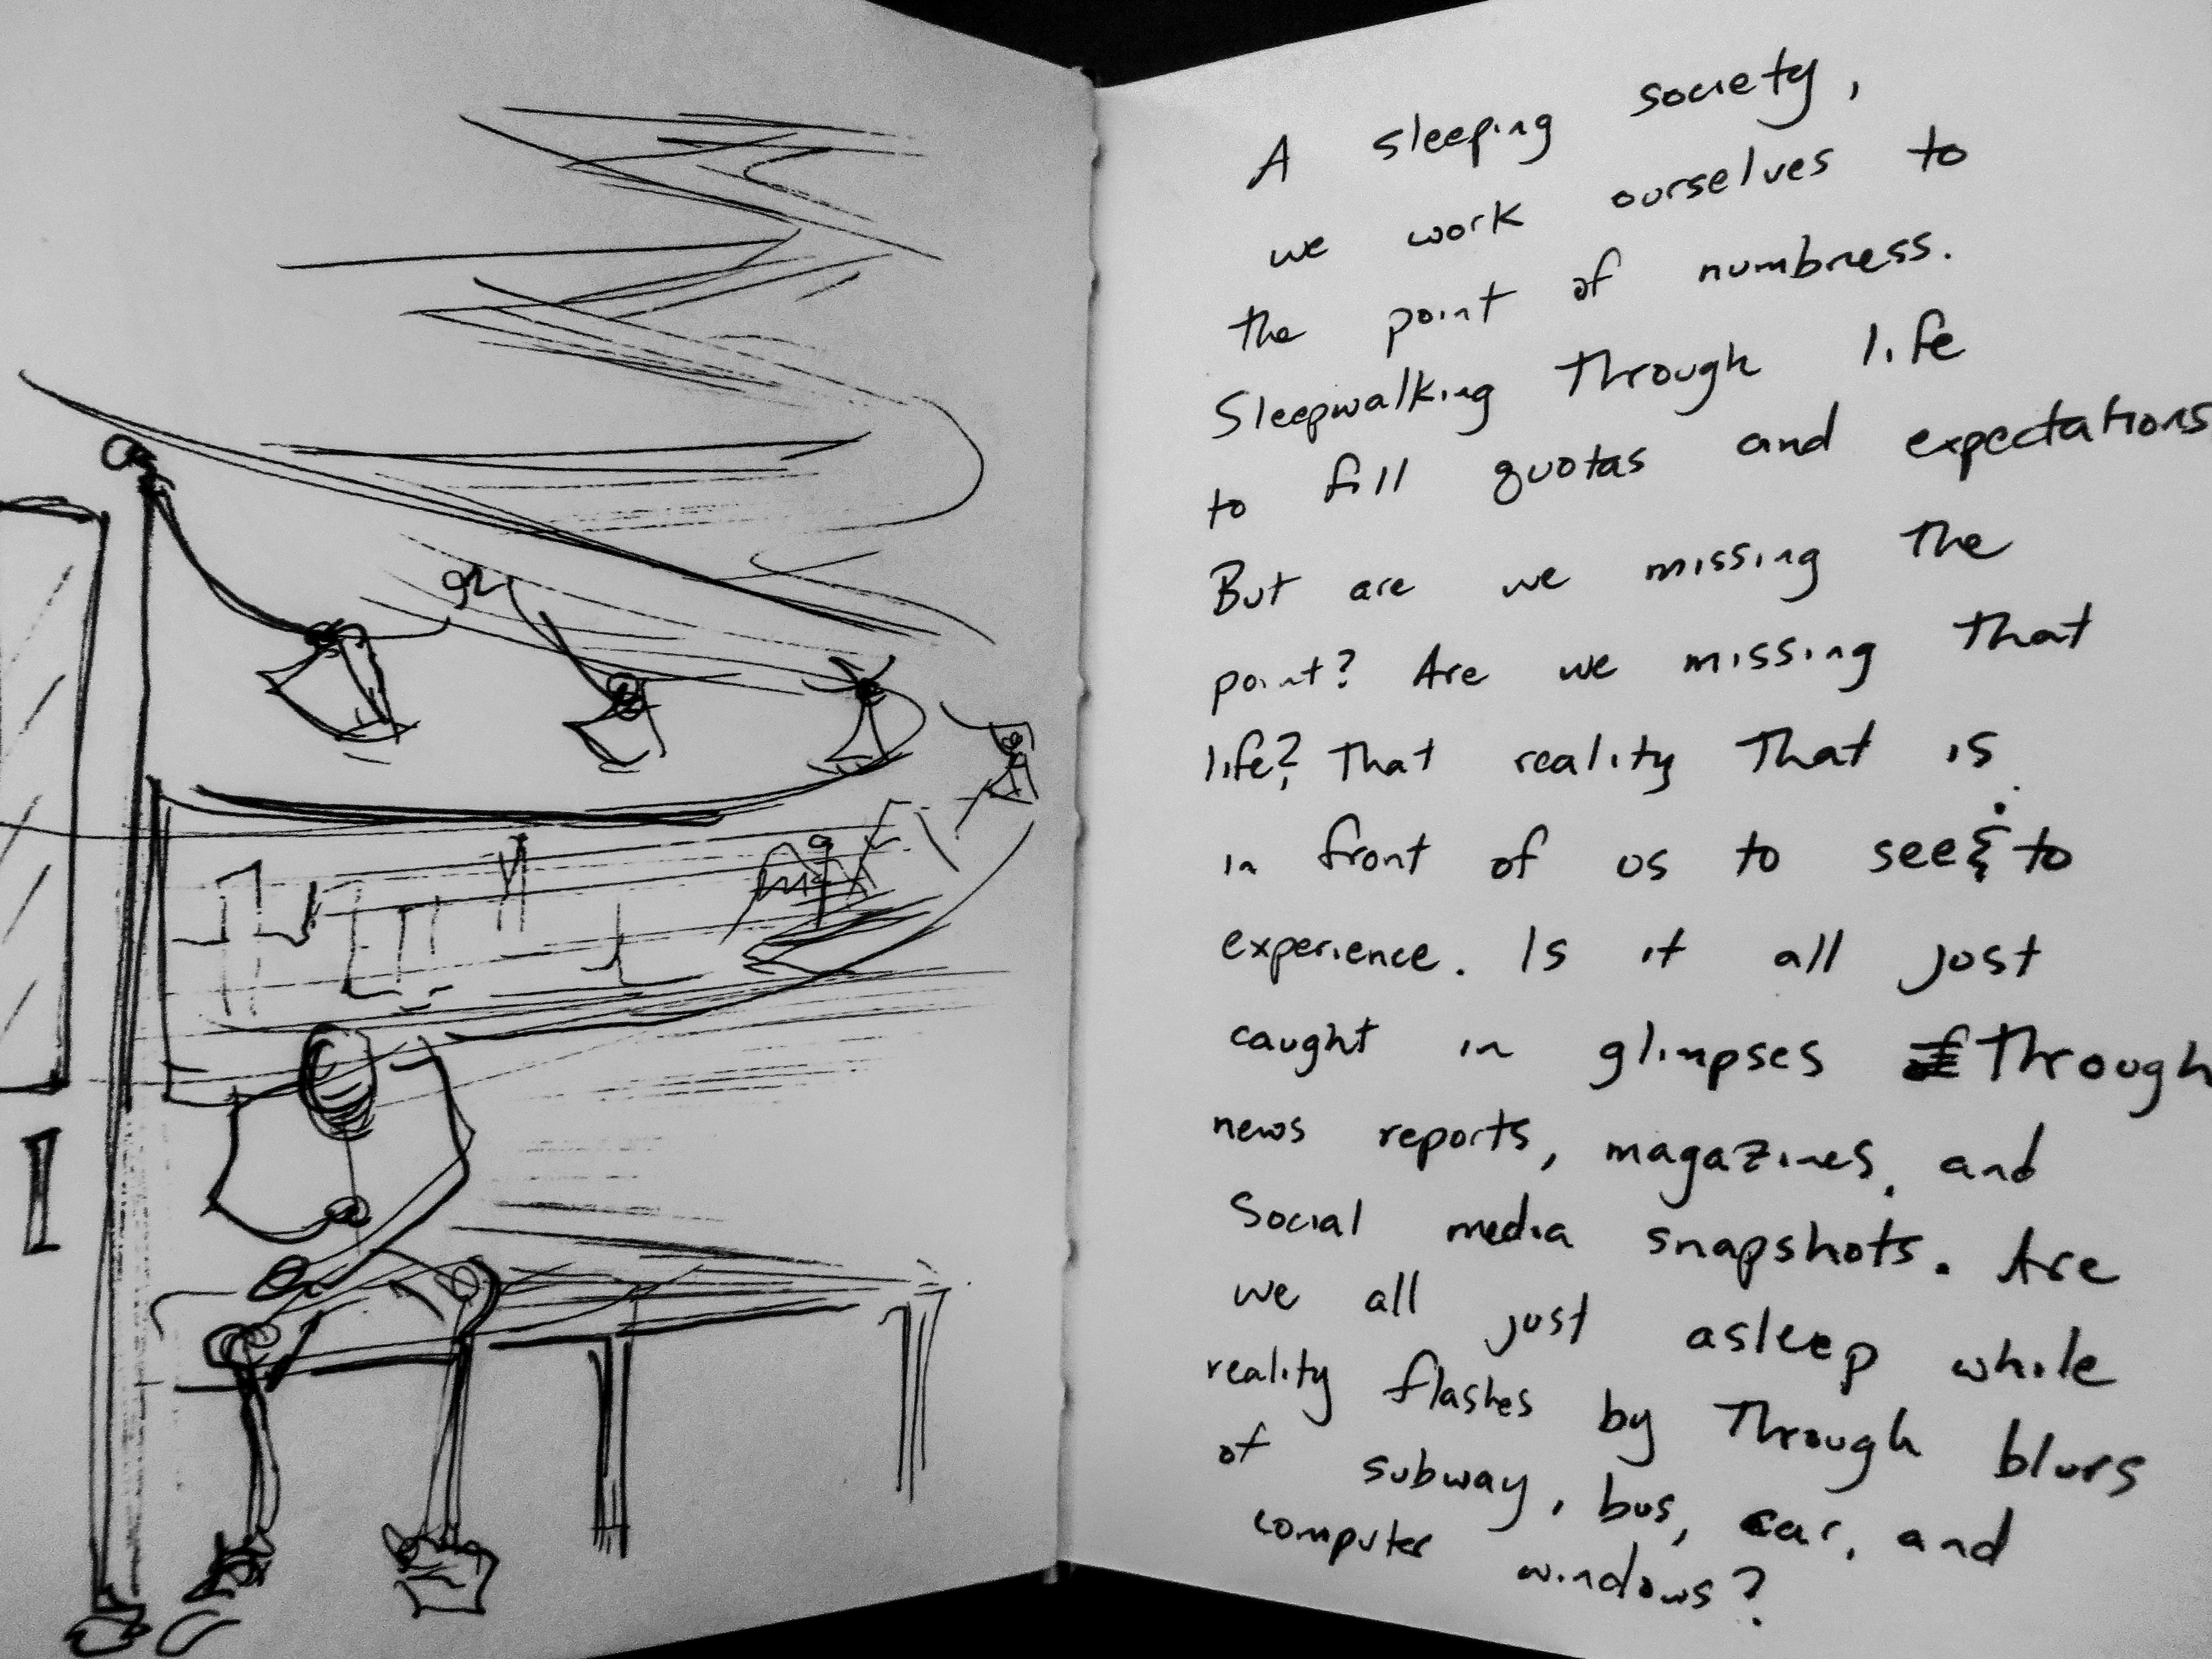 A sleeping society,
we work ourselves to
the point of numbness.
Sleepwalking through life
to fill quotas and expectations
But are we missing the
point? Are we missing that
life? That reality that is
in front of us to see & to
experience. Is it all just
caught in glimpses through
news reports, magazines, and
Social media snapshots. Are
we all just asleep while
reality flashes by through blurs
of subway, bus, car, and
computer windows?